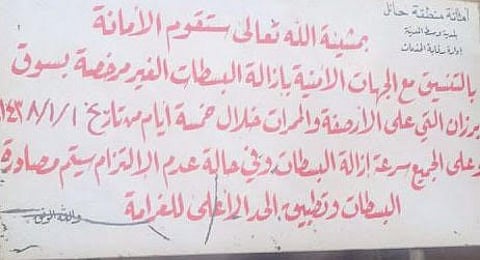 أمانة منطقة حائل
بلدية وسط المدينة
إدارة رقابة الخدمات
بمشيئة الله تعالى ستقوم الأمانة
بالتنسيق مع الجهات الأمنية بإزالة البسطات الغير مرخصة بسوق
برزان التي على الأرصفة والممرات خلال خمسة أيام من تاريخ ١٤٣٨/١/١
وعلى الجميع سرعة إزالة البسطات وفي حالة عدم الالتزام سيتم مصادرة
البسطات وتطبيق الحد الأعلى للغرامة
والله الموفق